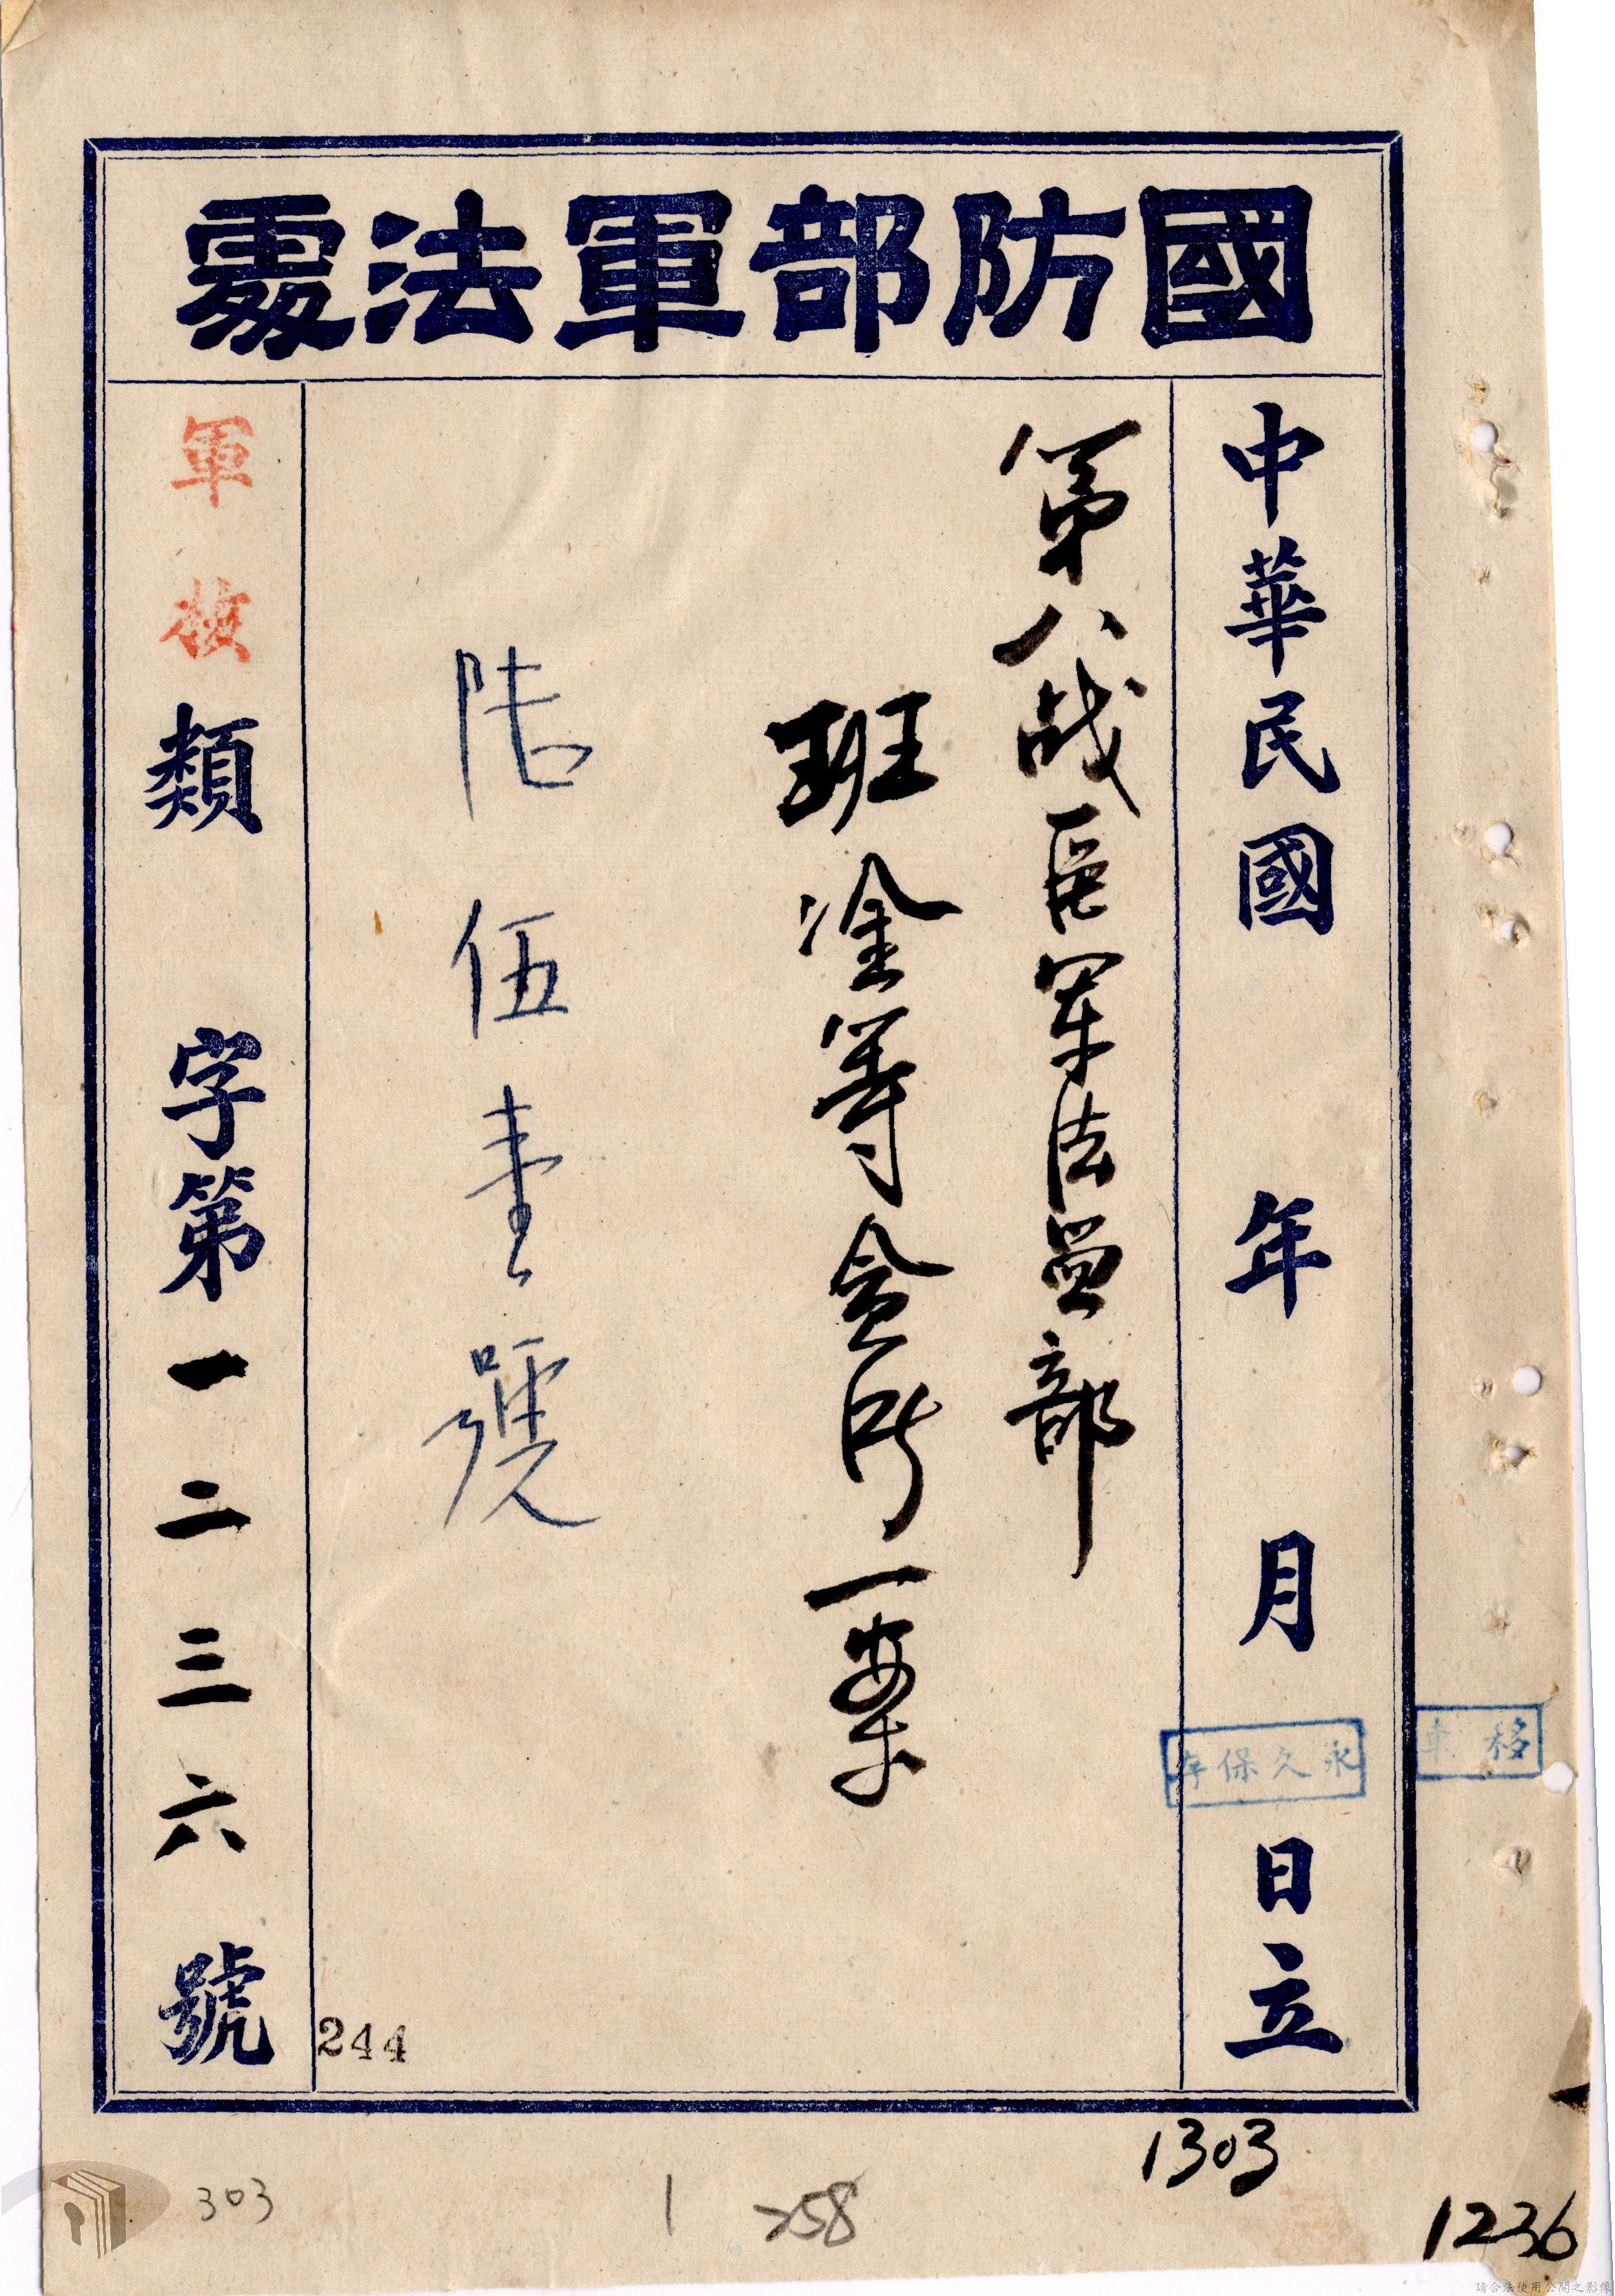 國防部軍法處
中華民國 年 月 日立
永久保存
移
第八战區軍法監部
班淦等貪 一案
陸伍壹號
軍 類 字第一二三六號
244
1303
303
1
258
1236
請合法使用公開之影像